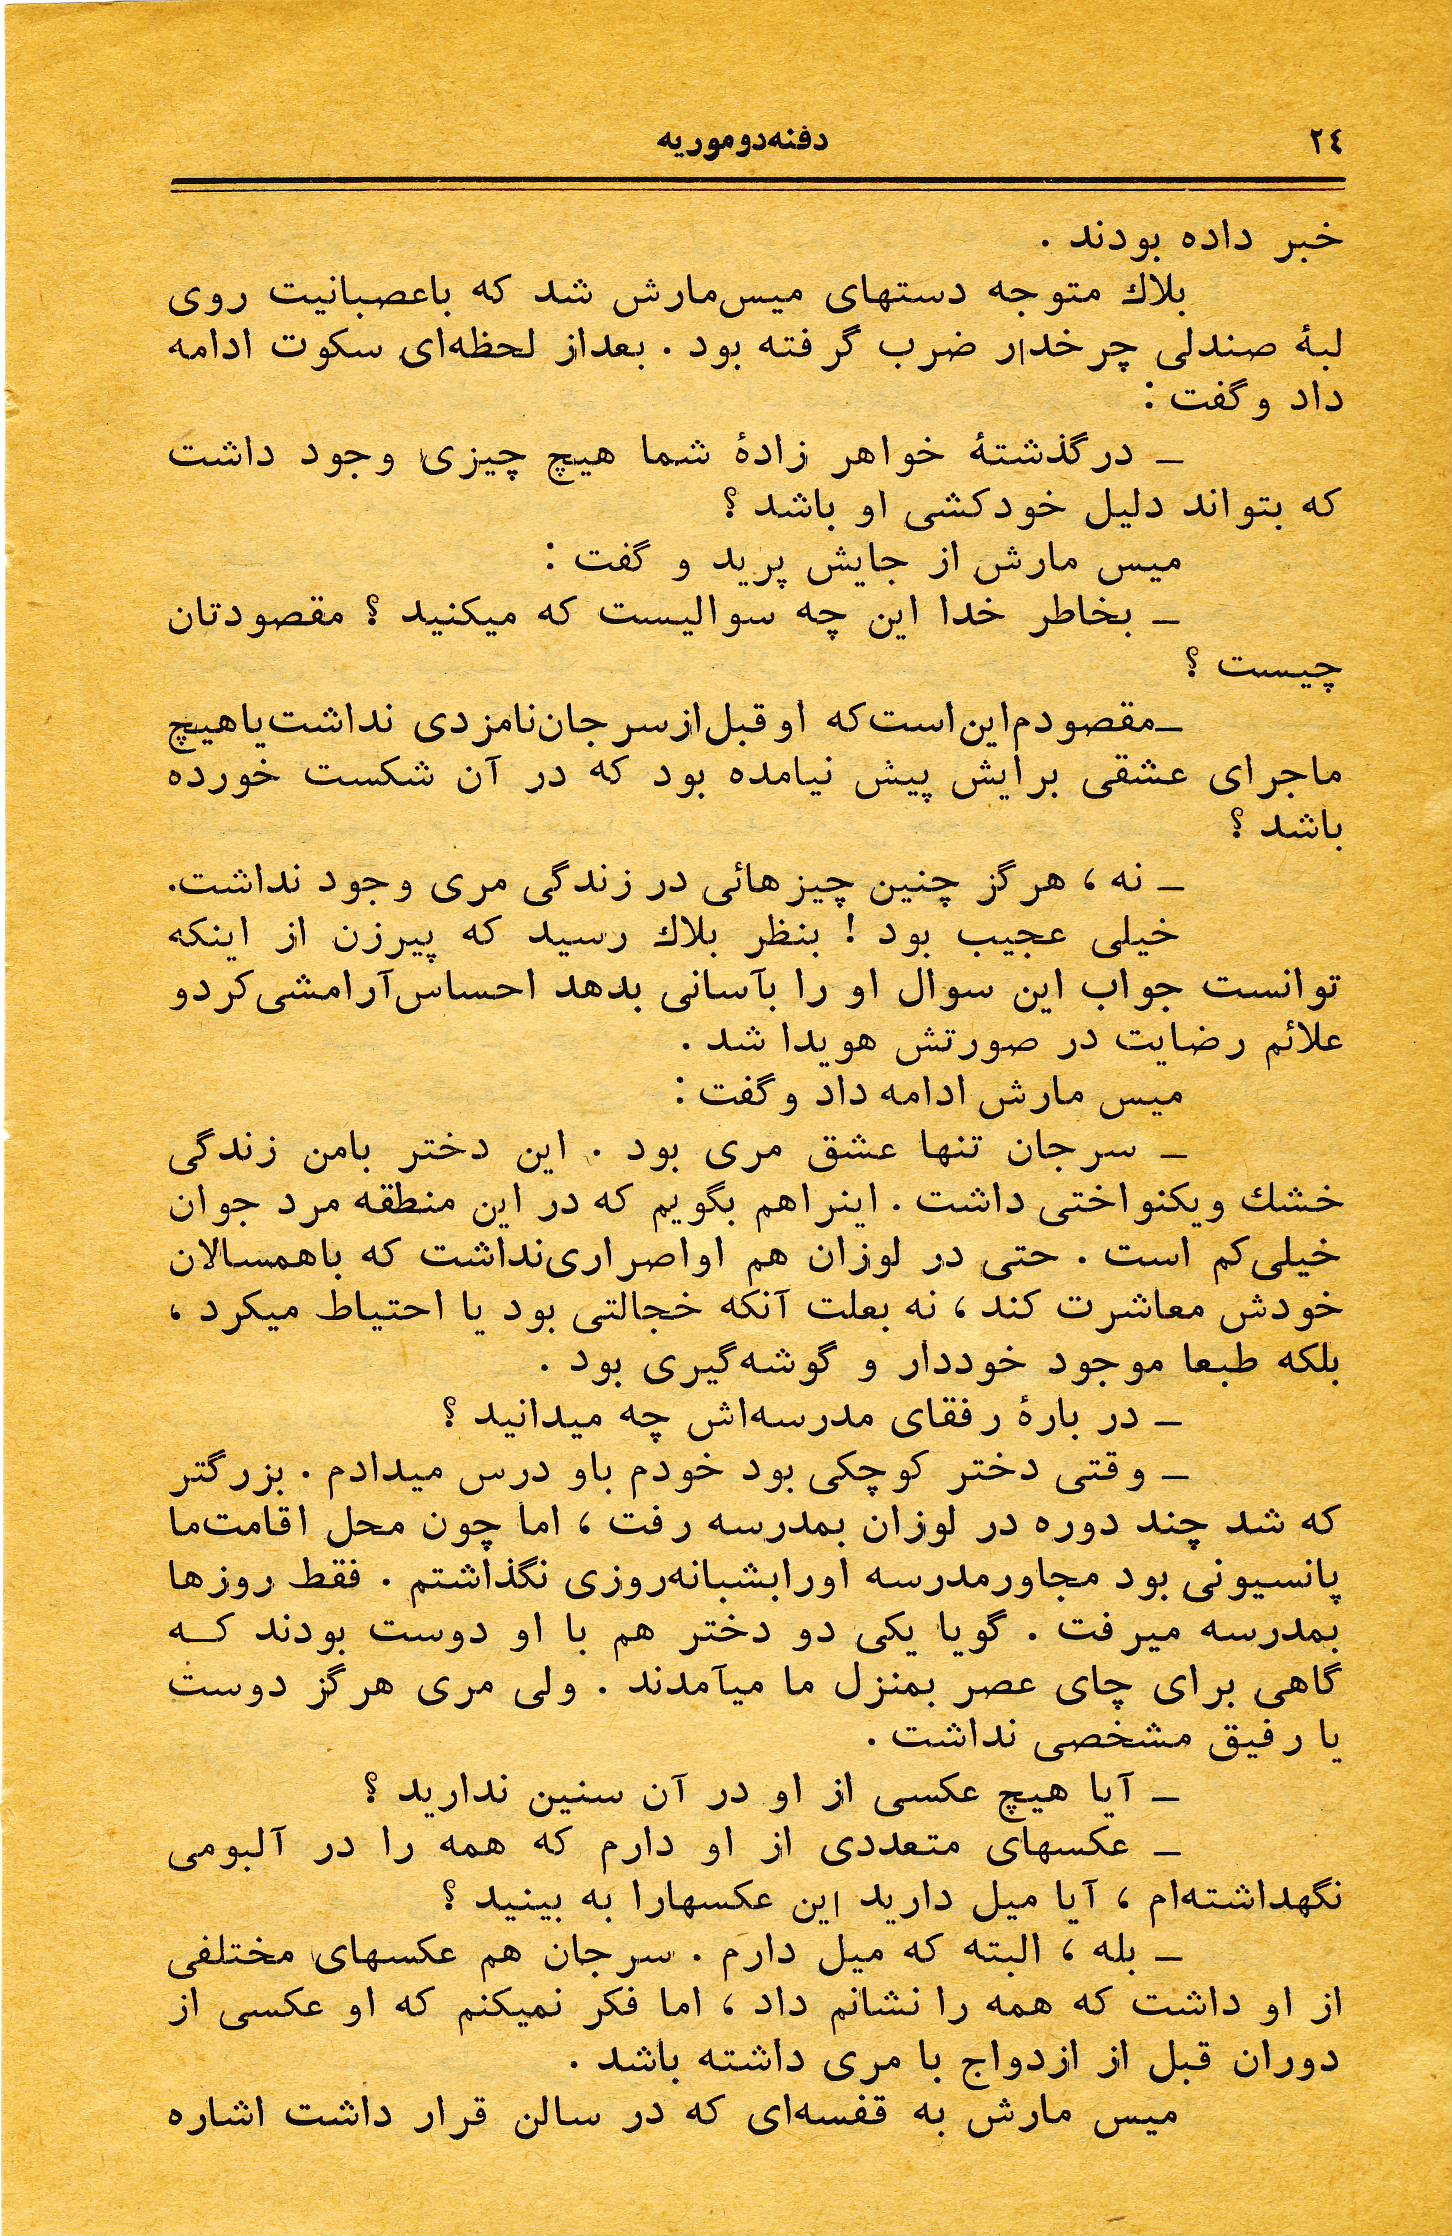 ٢٤
دفنه‌دوموریه
خبر داده بودند .
بلاك متوجه دستهای میس‌مارش شد که باعصبانیت روی
لبهٔ صندلی چرخدار ضرب گرفته بود . بعداز لحظه‌ای سکوت ادامه
داد وگفت :
ـ درگذشتهٔ خواهر زادهٔ شما هیچ چیزی وجود داشت
که بتواند دلیل خودکشی او باشد ؟
میس مارش از جایش پرید و گفت :
ـ بخاطر خدا این چه سوالیست که میکنید ؟ مقصودتان
چیست ؟
ـ‌مقصودم‌این‌است‌که او قبل‌از‌سرجان‌نامزدی نداشت‌یا‌هیچ
ماجرای عشقی برایش پیش نیامده بود که در آن شکست خورده
باشد ؟
ـ نه ، هرگز چنین چیزهائی در زندگی مری وجود نداشت.
خیلی عجیب بود ! بنظر بلاك رسید که پیرزن از اینکه
توانست جواب این سوال او را بآسانی بدهد احساس‌آرامشی‌کردو
علائم رضایت در صورتش هویدا شد .
میس مارش ادامه داد وگفت :
ـ سرجان تنها عشق مری بود . این دختر بامن زندگی
خشك ویکنواختی داشت . اینراهم بگویم که در این منطقه مرد جوان
خیلی‌کم است . حتی در لوزان هم اواصراری‌نداشت که باهمسالان
خودش معاشرت کند ، نه بعلت آنکه خجالتی بود یا احتیاط میکرد ،
بلکه طبعا موجود خوددار و گوشه‌گیری بود .
ـ در بارهٔ رفقای مدرسه‌اش چه میدانید ؟
ـ وقتی دختر کوچکی بود خودم باو درس میدادم . بزرگتر
که شد چند دوره در لوزان بمدرسه رفت ، اما چون محل اقامت‌ما
پانسیونی بود مجاورمدرسه اورابشبانه‌روزی نگذاشتم . فقط روزها
بمدرسه میرفت . گویا یکی دو دختر هم با او دوست بودند کــه
گاهی برای چای عصر بمنزل ما میآمدند . ولی مری هرگز دوست
یا رفیق مشخصی نداشت .
ـ آیا هیچ عکسی از او در آن سنین ندارید ؟
ـ عکسهای متعددی از او دارم که همه را در آلبومی
نگهداشته‌ام ، آیا میل دارید این عکسهارا به بینید ؟
ـ بله ، البته که میل دارم . سرجان هم عکسهای مختلفی
از او داشت که همه را نشانم داد ، اما فکر نمیکنم که او عکسی از
دوران قبل از ازدواج با مری داشته باشد .
میس مارش به قفسه‌ای که در سالن قرار داشت اشاره